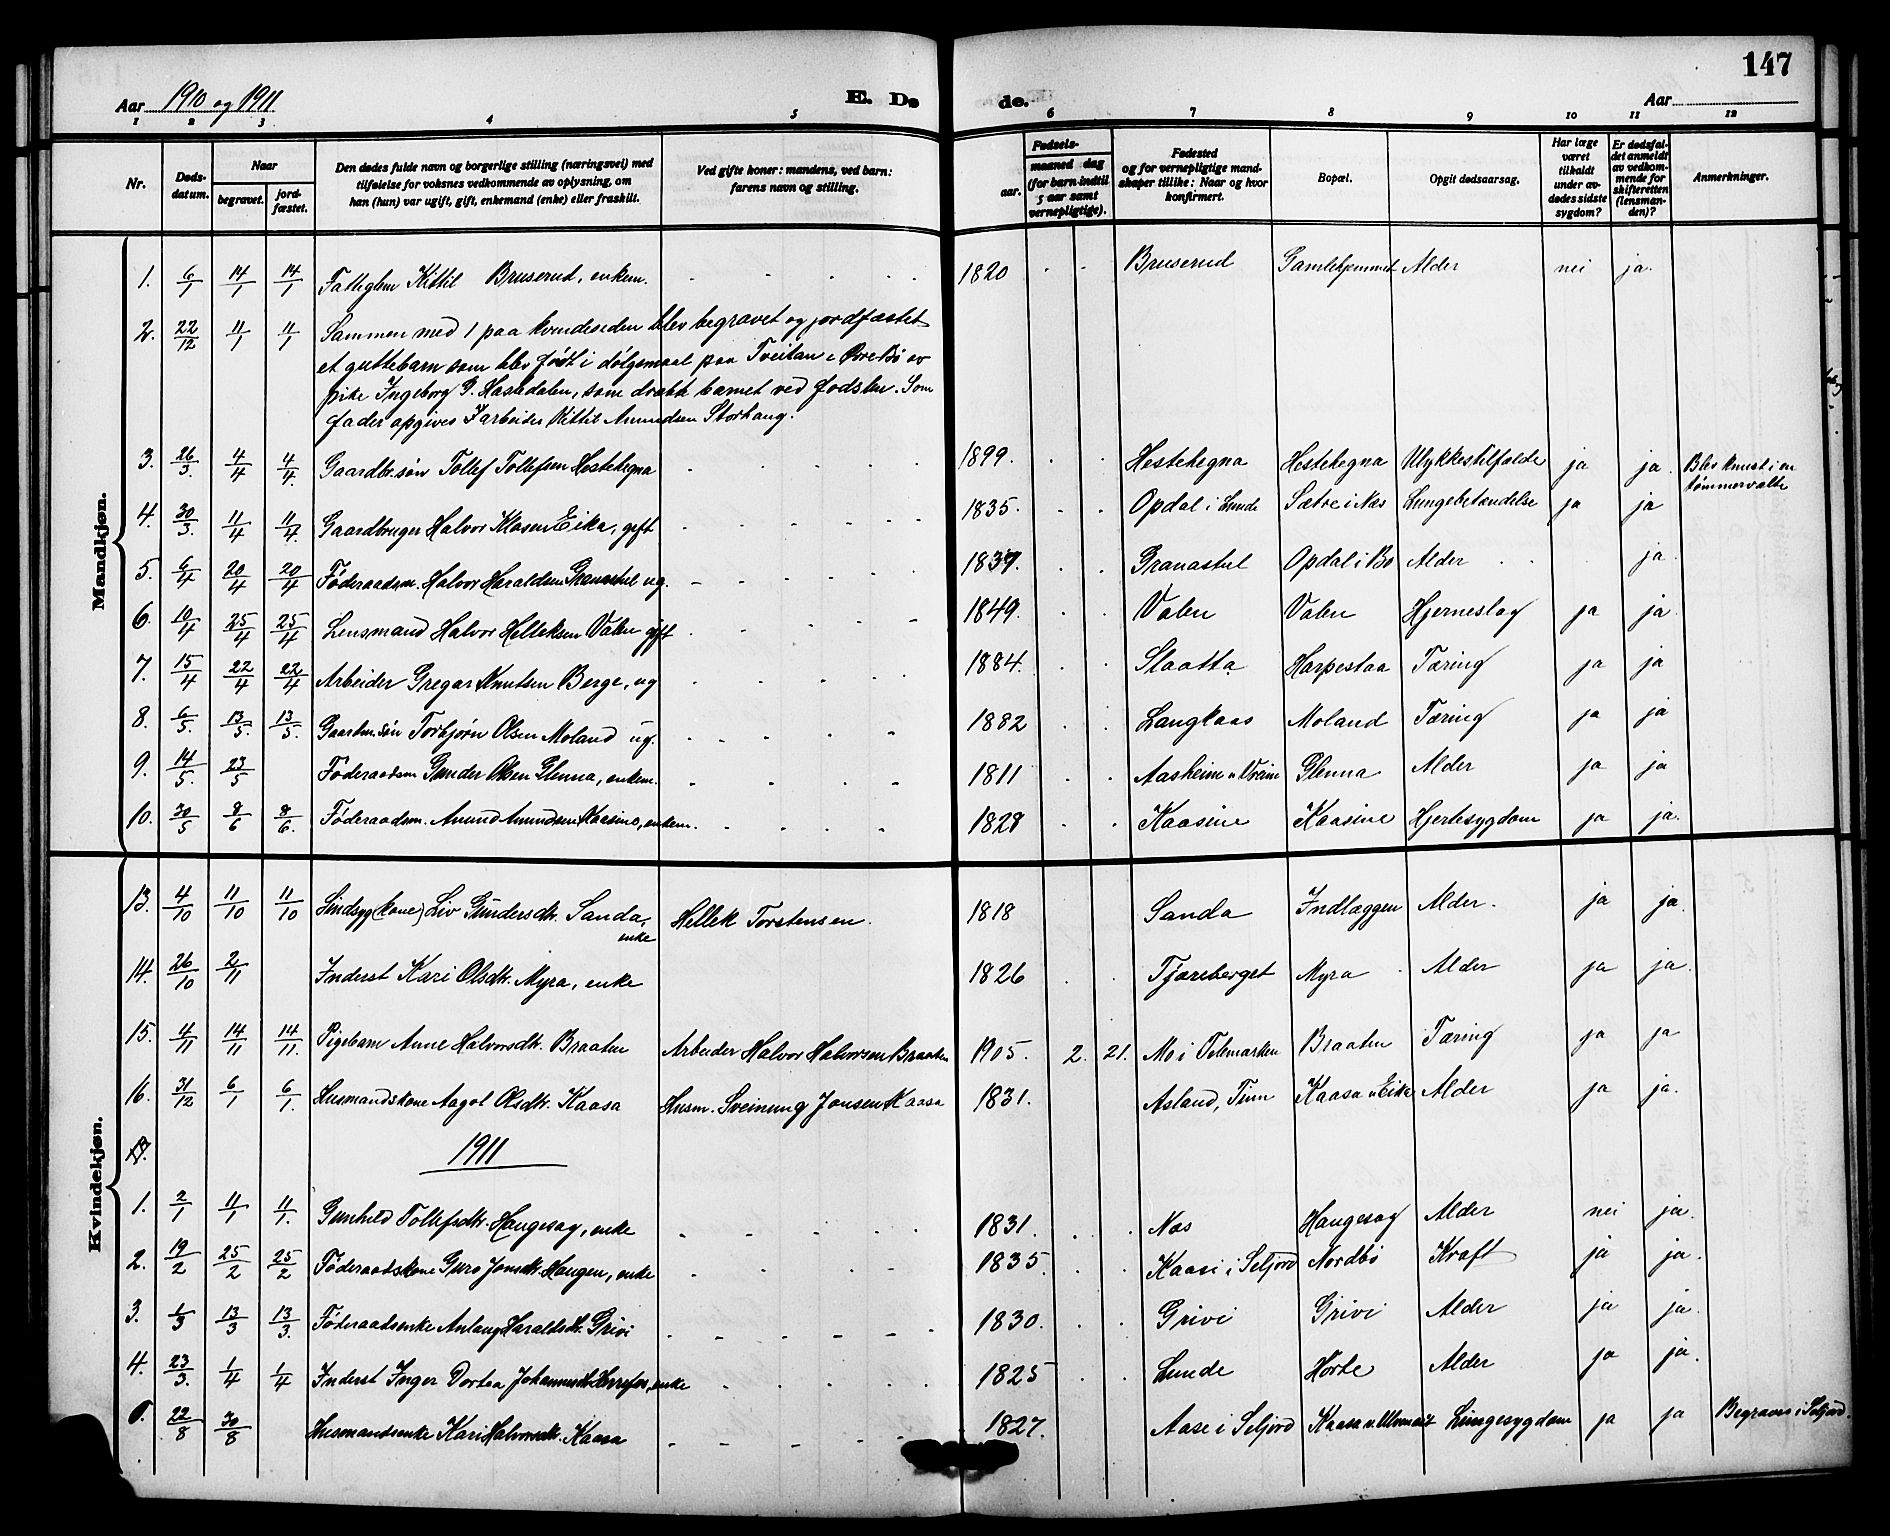 147
Aar 1910 og 1911 E. Dø de. Aar
1 2 3 4 5 6 7 8 9 10 11 12
Nr. Døds-datum. Naar begravet. jord-fæstet. Den dødes fulde navn og borgerlige stilling (næringsvei) med tilføielse for voksnes vedkommende av oplysning, om han (hun) var ugift, gift, enkemand (enke) eller fraskilt. Ved gifte koner: mandens, ved barn: farens navn og stilling. Fødsels- aar. maaned dag (for barn indtil 5 aar samt vernepligtige). Fødested og for vernepligtige mand-skaper tillike: Naar og hvor konfirmert. Bopæl. Opgit dødsaarsag. Har læge været tilkaldt under av-dødes sidste sygdom? Er dødsfal-det anmeldt av vedkom-mende for skifteretten (lensman-den)? Anmerkninger.
Mandkjøn.
1. 6/1 14/1 14/1 Fattiglem Kittil Bruserud, enkem. 1820 Bruserud Gamlehjemmet Alder nei ja.
2. 22/12 11/1 11/1 Sammen med 1 paa kvindesiden blev begravet og jordfæstet
et guttebarn som blev født i dølgsmaal paa Tveitan i Øvre Bø av
pike Ingeborg P. Hastedalen, som dræbte barnet ved fødslen. Som
fader opgives J.arbeider Kittil Amundsen Storhaug.
3. 26/3 4/4 4/4 Gaardbr.søn Tollef Tollefsen Hestehegna 1899. Hestehegna Hestehegna Ulykkestilfælde ja ja. Blev knust i en
tømmervælte
4. 30/3. 11/4 11/4. Gaardbruger Halvor Klasen Eika, gift 1835. Opdal i Lunde Sætre i Nes Lungebetændelse ja ja
5. 6/4 20/4 20/4 Føderaadsm. Halvor Haraldsen Granastul ug. 1839. Granastul Opdal i Bø Alder ja.
6. 10/4 25/4 25/4 Lensmand Halvor Helleksen Valen gift 1849. Valen Valen Hjerneslag ja ja.
7. 15/4 22/4 22/4 Arbeider Gregar Knutsen Berge, ug 1884. Slaatta Harpestaa Tæring ja ja
8. 6/5. 13/5. 13/5. Gaardm.søn Torbjørn Olsen Moland ug. 1882 Langkaas Moland Tæring ja ja
9. 14/5. 23/5 Føderaadsm Gunder Olsen Glenna, enkem. 1811 Aasheim Glenna Alder ja ja
10. 30/5 8/6 8/6. Føderaadsm. Amund Amundsen Kaasine, enkem. 1828 Kaasine Kaasine Hjertesygdom ja ja.
Kvindekjøn.
13. 4/10 11/10 11/10 Sindsyg (kone) Liv Gundersdtr. Sanda, Hellek Torstensen. 1818 Sanda Indlæggen Alder. ja ja.
enke
14. 26/10 2/11 Inderst Kari Olsdtr. Myra, enke 1826 Myra Alder ja ja.
15. 4/11 14/11 14/11. Pigebarn Anne Halvorsdtr. Braaten Arbeider Halvor Halvorsen Braaten 1905. 2. 21. Mo i Telemarken Braaten Tæring ja ja
16. 31/12 6/1 6/1. Husmandskone Aagot Olsdtr. Kaasa Husm. Sveinung Jonsen Kaasa 1831. Asland, Tinn Kaasa u. Eika Alder ja ja.
17.
1911
1. 2/1 11/1 11/1. Gunhild Tollefsdtr. Haugesag, enke 1831. Nes Haugesag Alder nei ja.
2. 19/2 25/2 25/2 Føderaadskone Guro Jonsdtr. Haugen, enke 1835. Kaasi i Seljord Nordbø Kræft ja ja.
3. 1/3 13/3 13/3. Føderaadsenke Anlaug Haraldsdtr. Grivi 1830. Grivi Grivi Alder ja ja.
4. 23/3. 1/4 1/4 Inderst Inger Dortea enke 1825 Lunde Hørte Alder ja ja.
22/8 30/8 Husmandsenke Kari Halvorsdtr. Kaasa 1827. Aase i Seljord Kaasa Lungesygdom ja ja Begraves i Seljord.